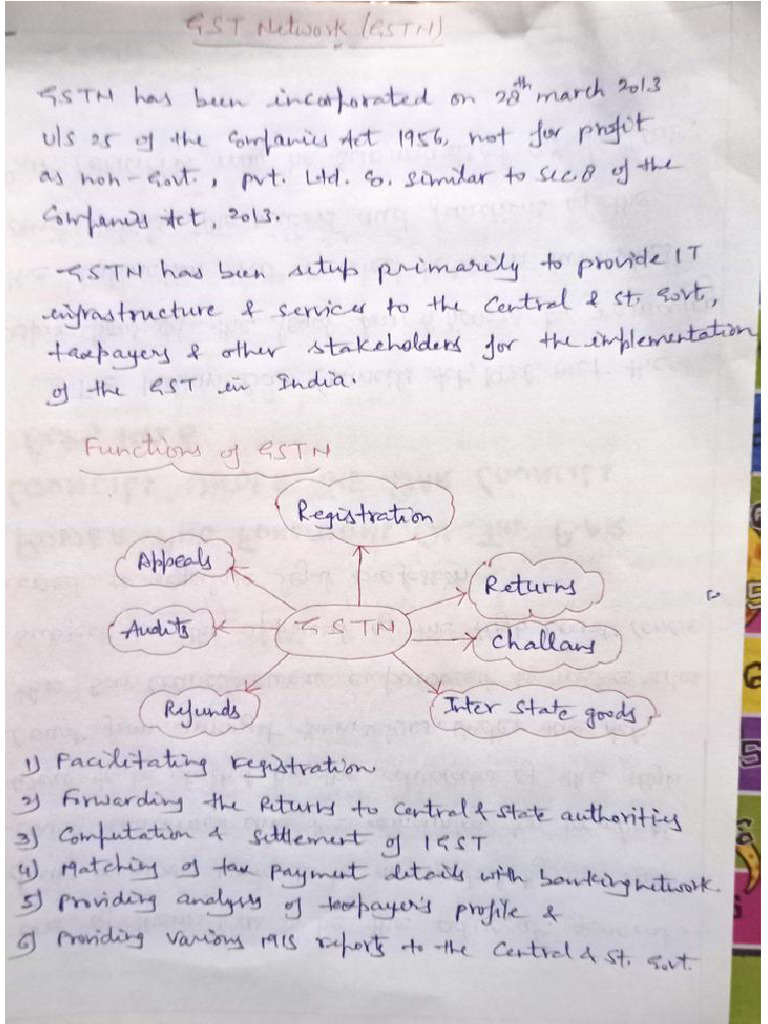 GST Network (GSTN)
GSTN has been incorporated on 28th march 2013
u/s 25 of the Companies Act 1956, not for profit
as non-Govt., pvt. Ltd. Co. similar to sec.8 of the
Companies Act, 2013.
GSTN has been setup primarily to provide IT
infrastructure & services to the Central & St. Govt,
taxpayers & other stakeholders for the implementation
of the GST in India.
Functions of GSTN
Registration
Appeals
Returns
Audits
GSTN
Challans
Refunds
Inter state goods
1) Facilitating registration
2) Forwarding the Returns to Central & State authorities
3) Computation & settlement of IGST
4) Matching of tax payment details with banking network
5) Providing analysis of taxpayer's profile &
6) Providing various MIS reports to the Central & St. Govt.